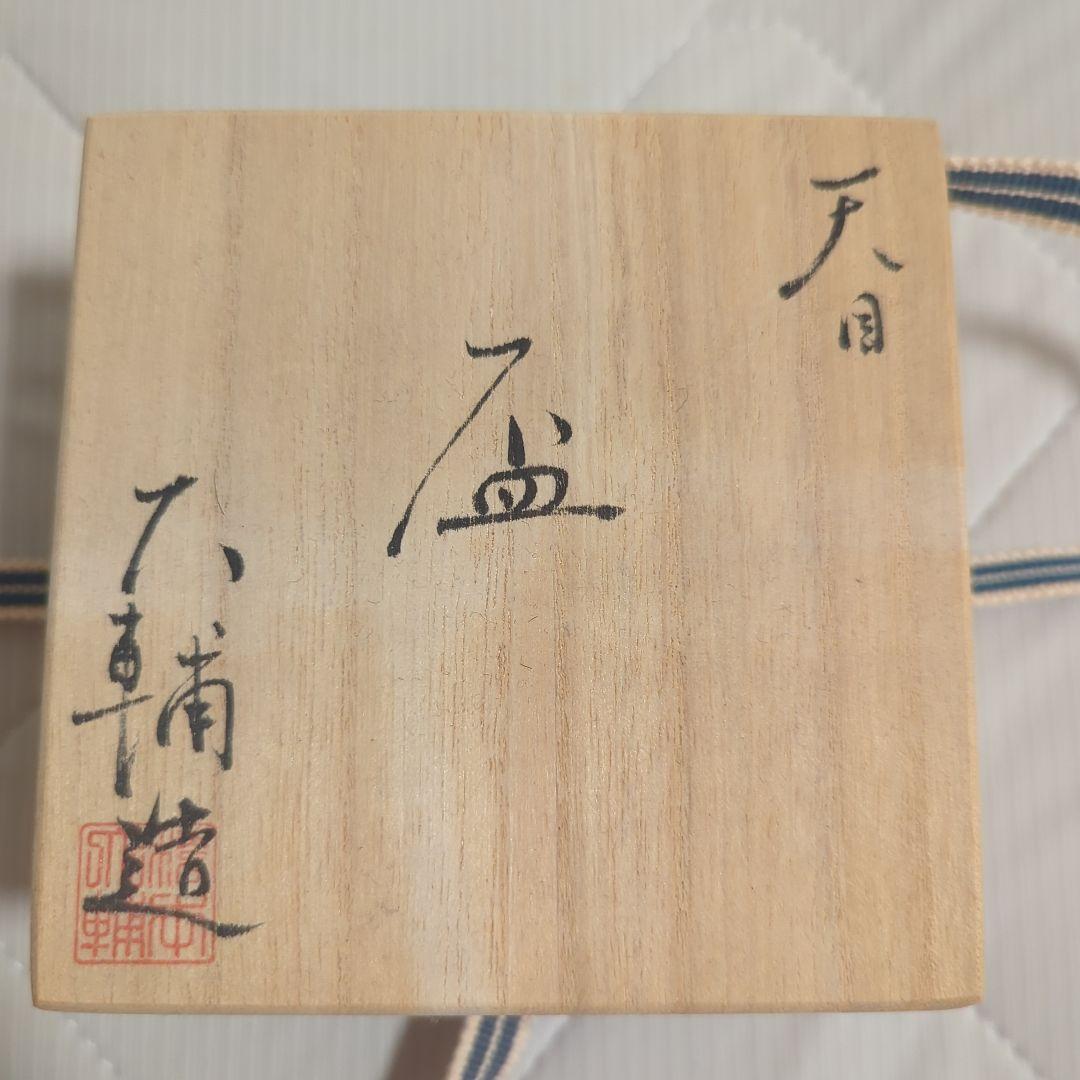 天目
盃
輔造